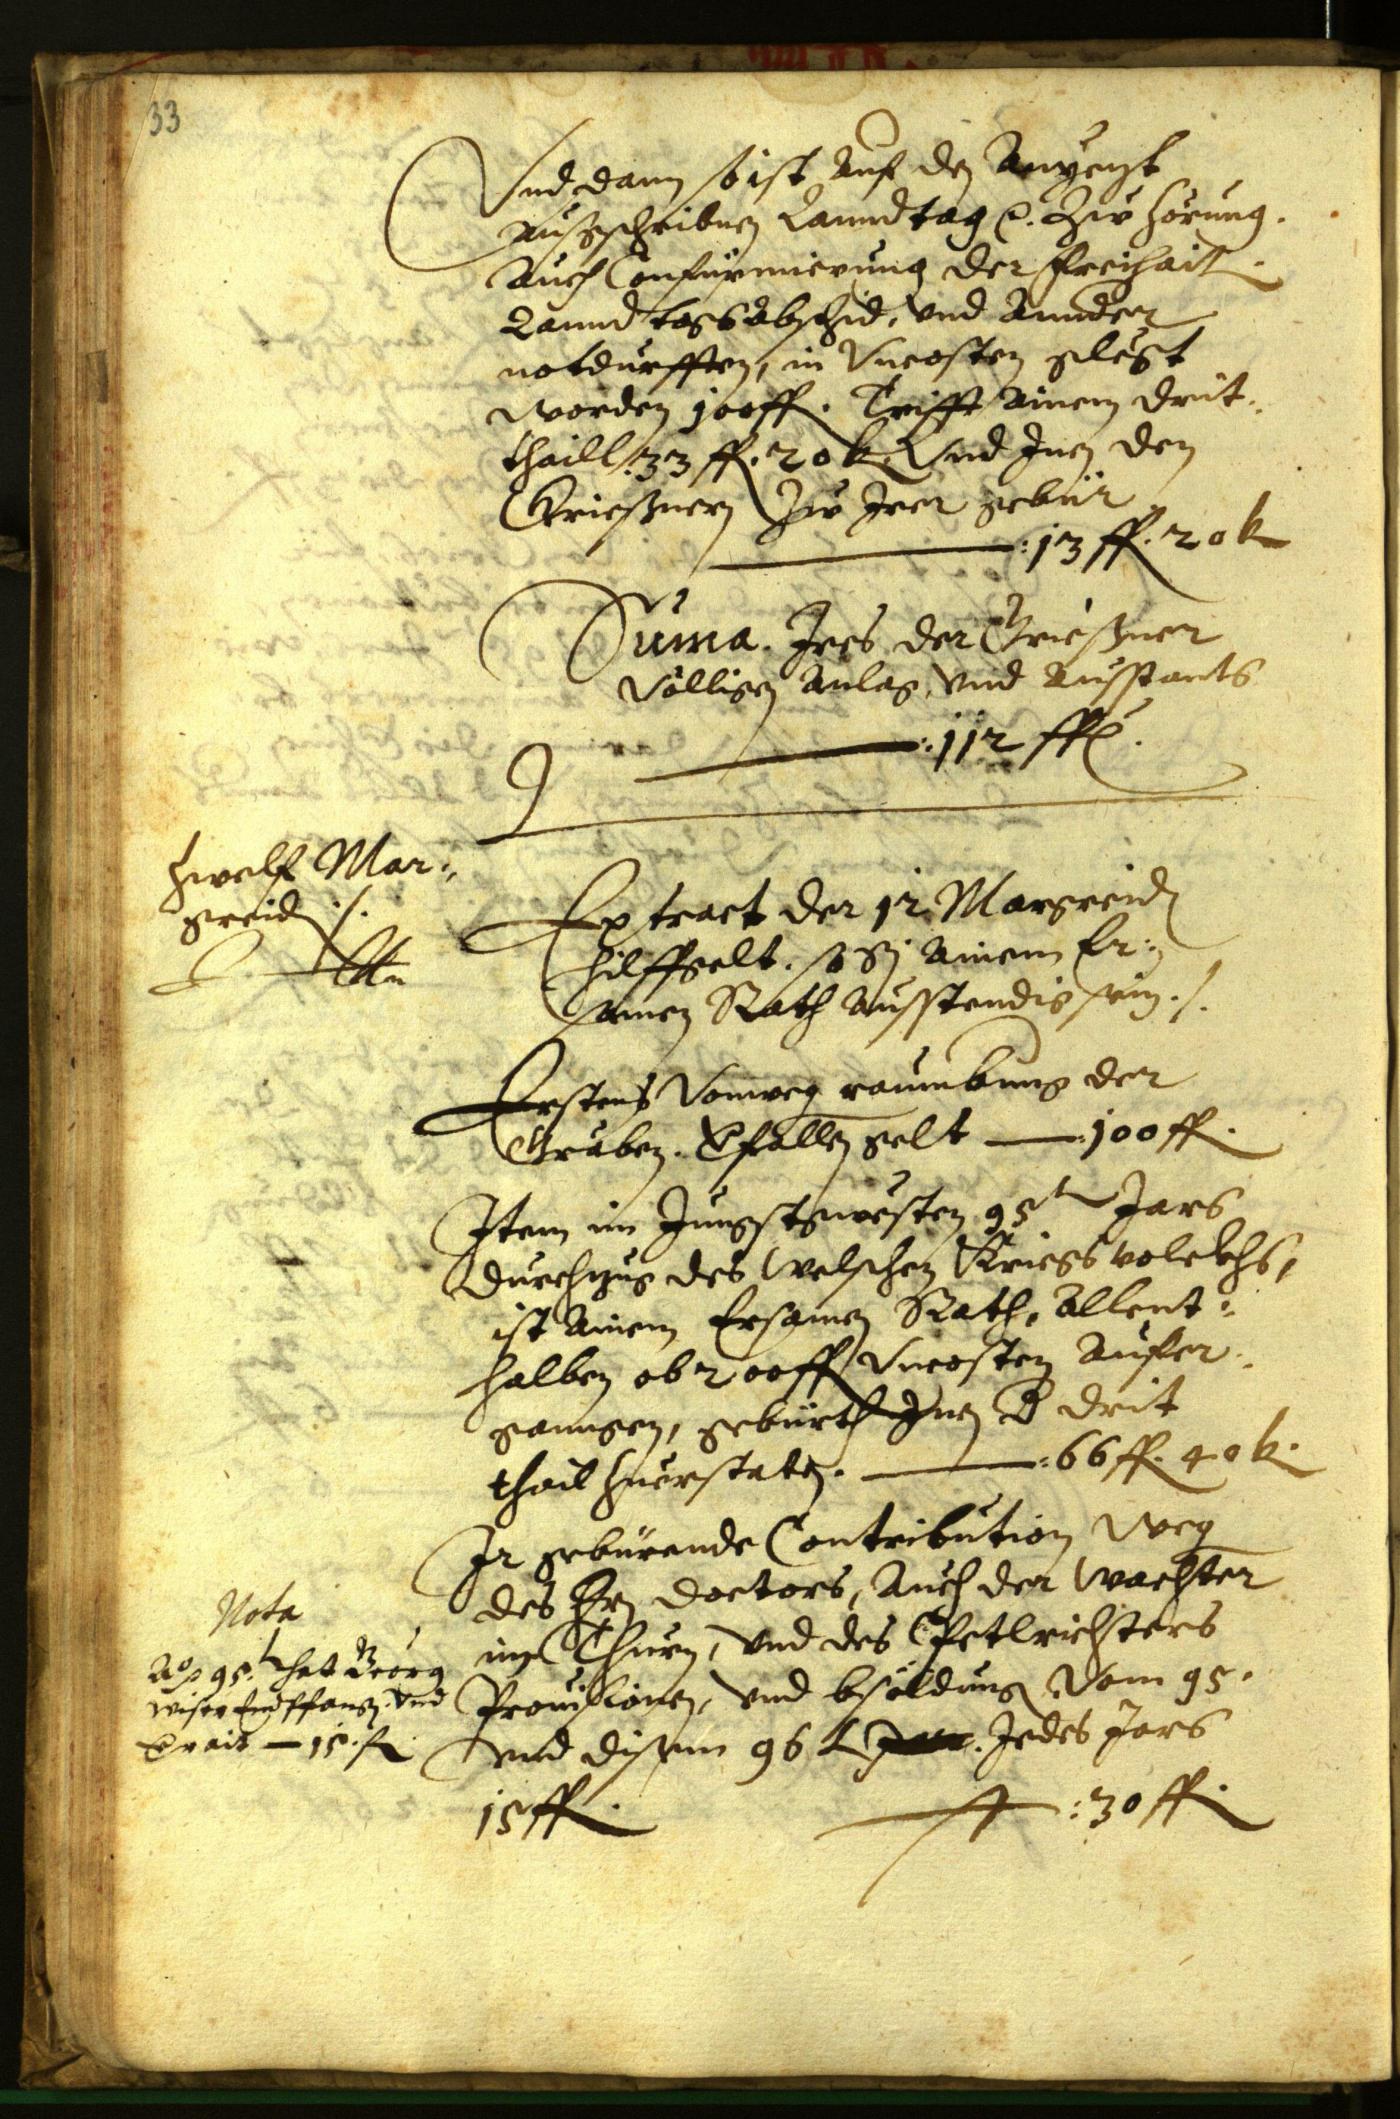 33
Und dann so ist auf den
außgeschribnen Lanndtag zu hörung.
auch Confürmierung der freihait.
Lanndtagsabschid, und annder
notdurfften, in Uncosten glegt
worden 100 fl. Trifft ainem drit-
thaill 33 fl. 20 k. Und Inen den
Grießnern Zu Irer gebür
13 fl. 20 k
Suma. Ires der Grießner
völligen anlag, und ausstants
112 fl
Zwelf Mar-
greid ./.
Extract der 12 Margreid
hilffgelt. so Sy ainem Er-
samen Rath ausstendig sein ./.
Erstens von weg raumbung der
Gräben. Pfallen gelt — 100 fl.
Item im Jungstgwesten 95 Jars
durchzug des Welschen Kriegsvolckhs,
ist ainem Ersamen Rath, allent-
halben ob 200 fl Uncosten aufer-
ganngen, gebürth Inen drit
thail zuerstaten. — 66 fl. 40 k.
Ir gebürende Contribution weg
des Hrn doctors, auch der Wachter
im Thurn, und des Petlrichters
Provisionen, und bsöldung vom 95.
und disem 96 Jedes Jars
15 fl. — 30 fl.
Nota
Ao. 95. hat Geörg
wiser Empfangen und
verait — 15. fl